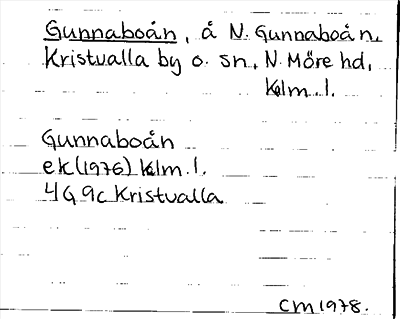 Gunnaboån, å N. Gunnaboån,
Kristvalla by o. sn, N. Möre hd,
Klm. l.
Gunnaboån
ek (1976) Klm. l.
4G 9c Kristvalla
CM 1978.